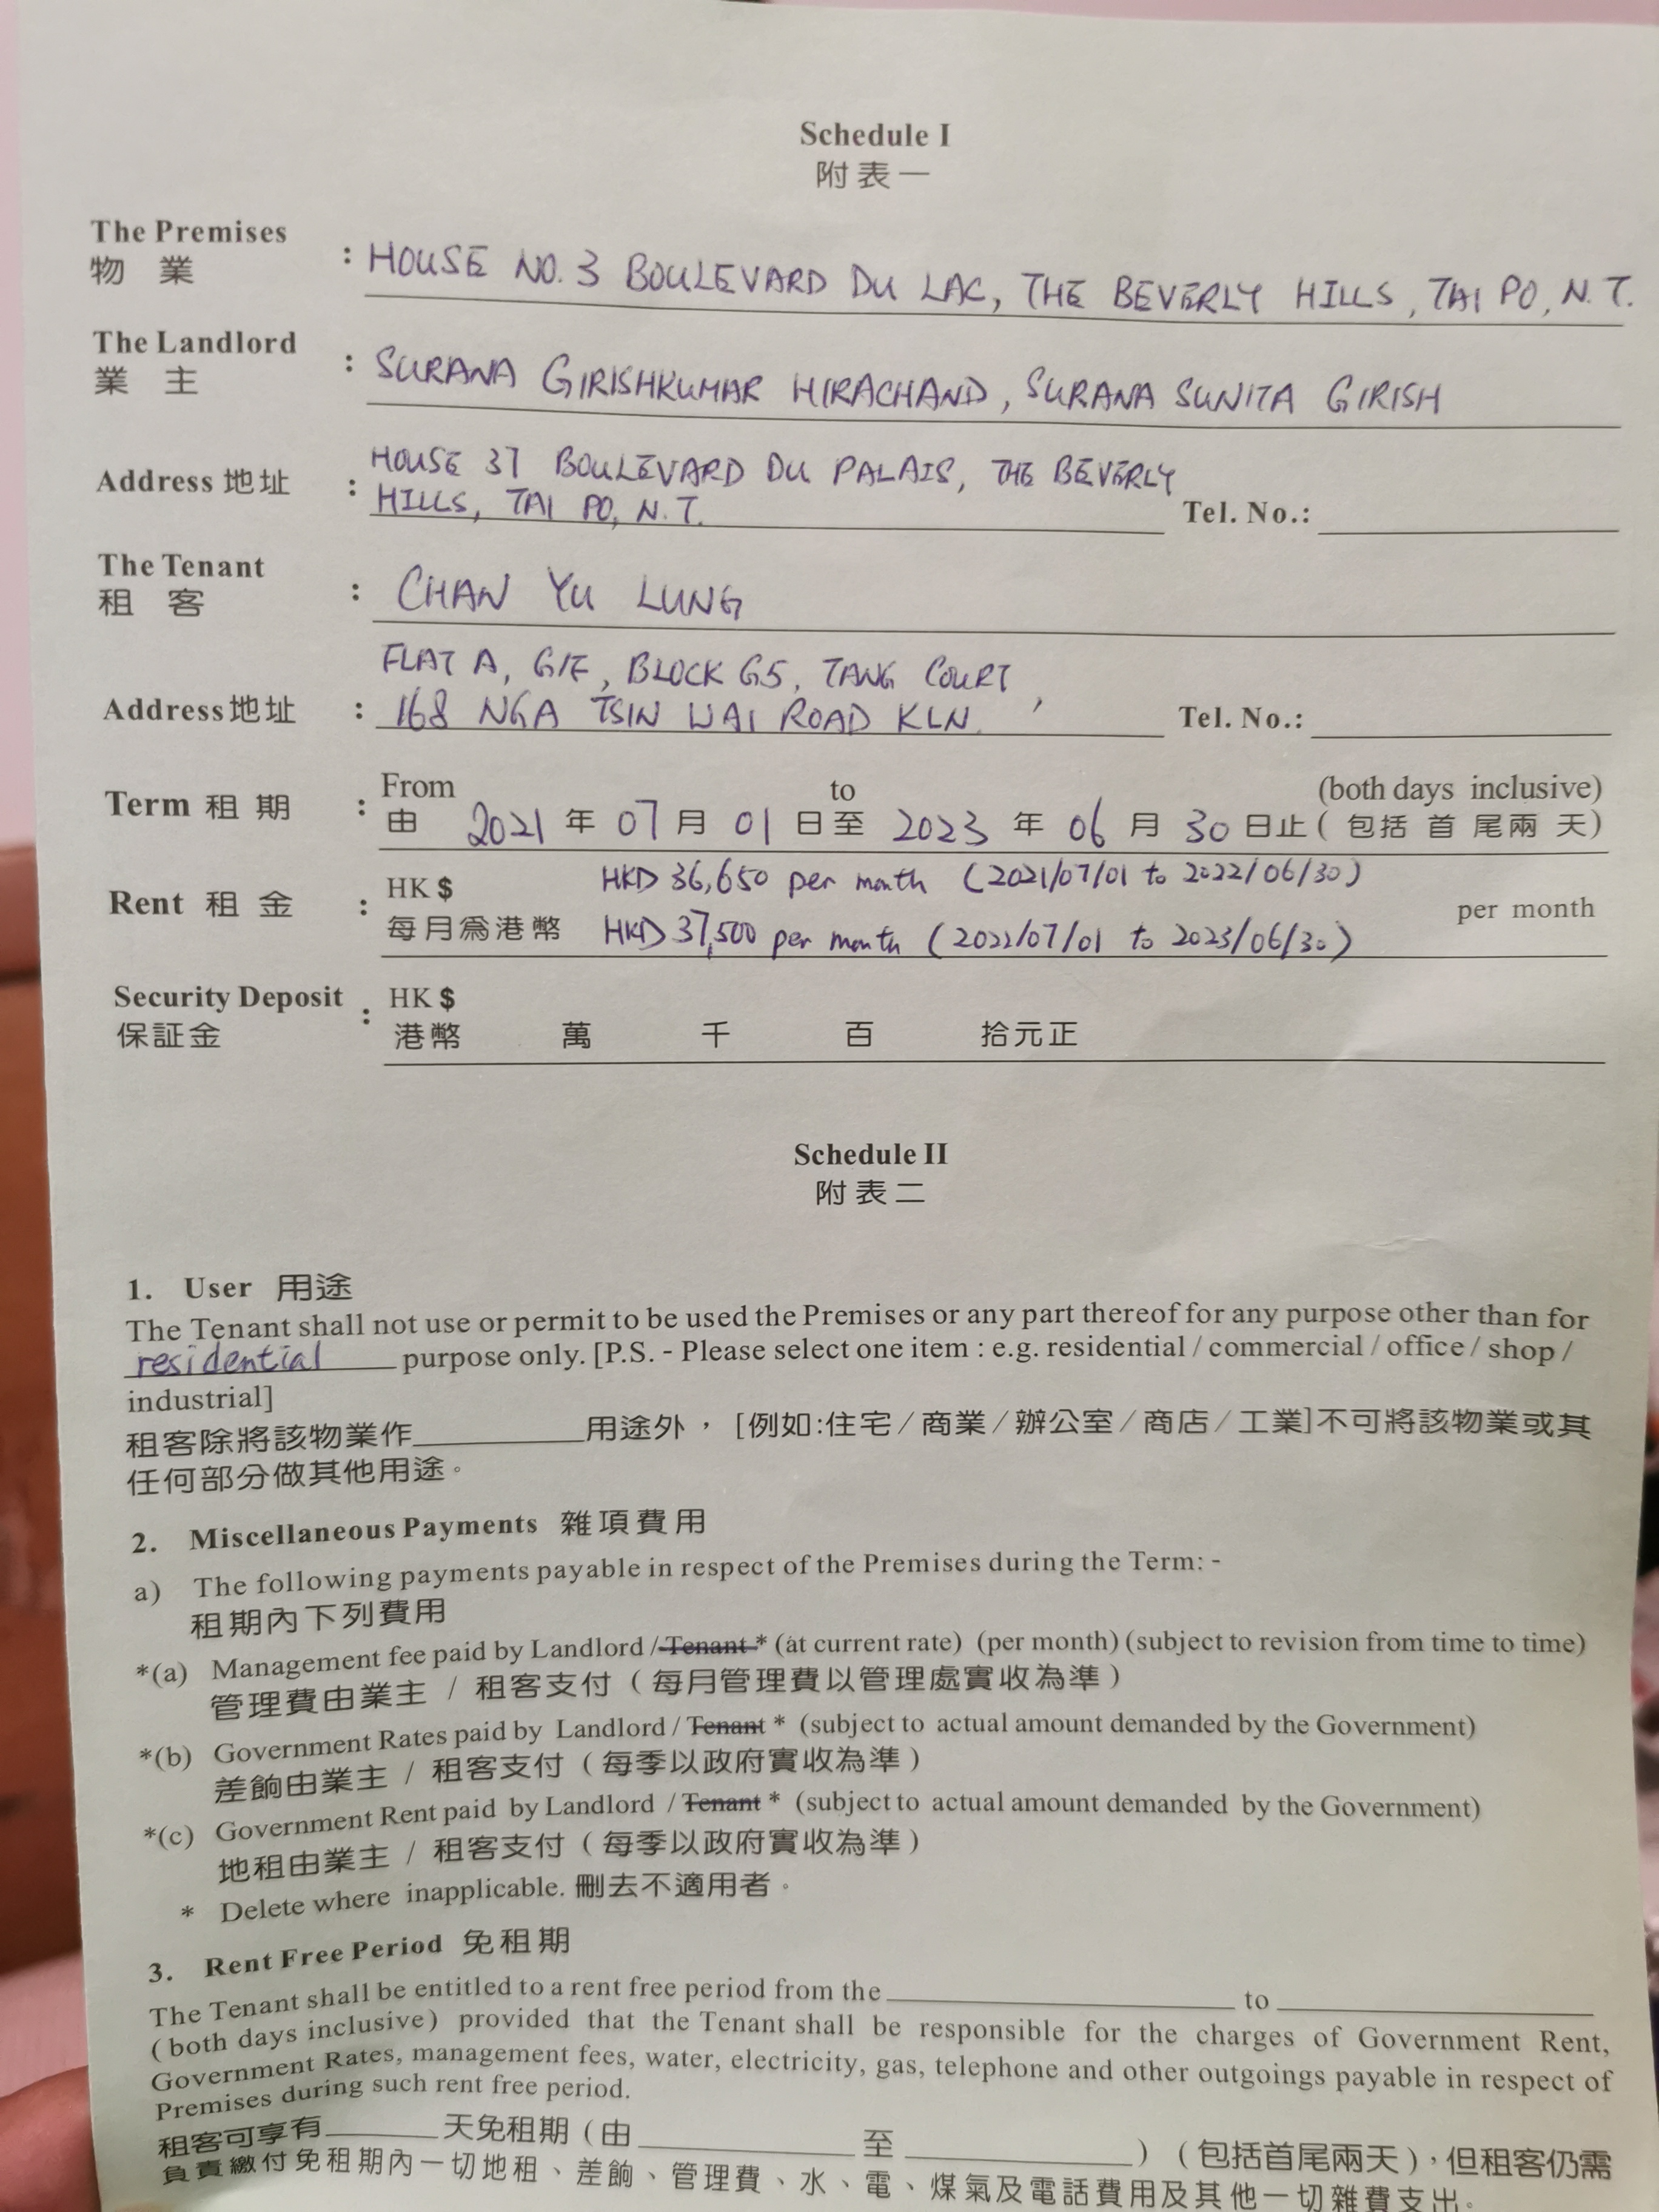 Schedule I
附表一
The Premises
物 業 : HOUSE NO. 3 BOULEVARD DU LAC, THE BEVERLY HILLS, TAI PO, N.T.
The Landlord
業 主 : SURANA GIRISHKUMAR HIRACHAND, SURANA SUNITA GIRISH
HOUSE 37 BOULEVARD DU PALAIS, THE BEVERLY
Address 地址 : HILLS, TAI PO, N.T. Tel. No.:
The Tenant
租 客 : CHAN YU LUNG
FLAT A, G/F, BLOCK G5, TANG COURT,
Address 地址 : 168 NGA TSIN WAI ROAD KLN. Tel. No.:
From to (both days inclusive)
Term 租 期 : 由 2021 年 07 月 01 日至 2023 年 06 月 30 日止 ( 包括 首 尾兩 天)
HK $ HKD 36,650 per month (2021/07/01 to 2022/06/30)
Rent 租 金 : per month
每月為港幣 HKD 37,500 per month (2022/07/01 to 2023/06/30)
Security Deposit : HK $
保証金 港幣 萬 千 百 拾元正
Schedule II
附表二
1. User 用途
The Tenant shall not use or permit to be used the Premises or any part thereof for any purpose other than for
residential purpose only. [P.S. - Please select one item : e.g. residential / commercial / office / shop /
industrial]
租客除將該物業作________用途外，[例如:住宅/商業/辦公室/商店/工業]不可將該物業或其
任何部分做其他用途。
2. Miscellaneous Payments 雜項費用
a) The following payments payable in respect of the Premises during the Term: -
租期內下列費用
*(a) Management fee paid by Landlord / Tenant * (at current rate) (per month) (subject to revision from time to time)
管理費由業主 / 租客支付 ( 每月管理費以管理處實收為準 )
*(b) Government Rates paid by Landlord / Tenant * (subject to actual amount demanded by the Government)
差餉由業主 / 租客支付 ( 每季以政府實收為準 )
*(c) Government Rent paid by Landlord / Tenant * (subject to actual amount demanded by the Government)
地租由業主 / 租客支付 ( 每季以政府實收為準 )
* Delete where inapplicable. 刪去不適用者。
3. Rent Free Period 免租期
The Tenant shall be entitled to a rent free period from the ________ to ________
(both days inclusive) provided that the Tenant shall be responsible for the charges of Government Rent,
Government Rates, management fees, water, electricity, gas, telephone and other outgoings payable in respect of
Premises during such rent free period.
租客可享有________天免租期 ( 由________至________ ) ( 包括首尾兩天 )，但租客仍需
負責繳付免租期內一切地租、差餉、管理費、水、電、煤氣及電話費用及其他一切雜費支出。